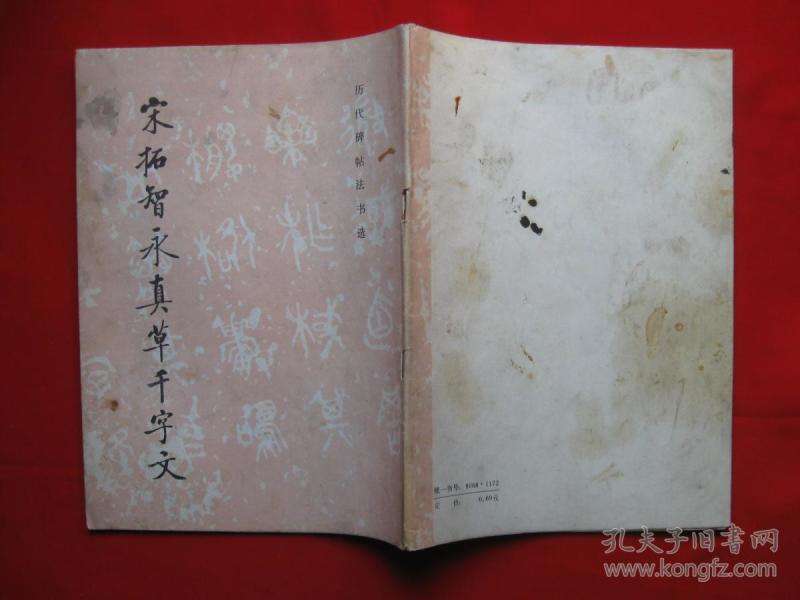 宋拓智永真草千字文
历代碑帖法书选
统一书号：8068·1172
定 价： 0.69元
孔夫子旧书网
www.kongfz.com